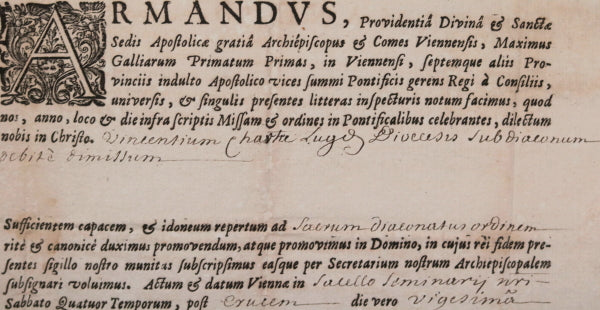 ARMANDVS, Providentiâ Divinâ & Sanctæ
Sedis Apostolicæ gratiâ Archiepiscopus & Comes Viennensis, Maximus
Galliarum Primatum Primas, in Viennensi, septemque aliis Pro-
vinciis indulto Apostolico vices summi Pontificis gerens Regi à Consiliis,
universis, & singulis presentes litteras inspecturis notum facimus, quod
nos, anno, loco & die infra scriptis Missam & ordines in Pontificalibus celebrantes, dilectum
nobis in Christo. Vincentium Lugd Diocesis subdiaconum
debitè dimissum
Sufficientem capacem, & idoneum repertum ad Sacrum diaconatus ordinem
ritè & canonicè duximus promovendum, atque promovimus in Domino, in cujus rei fidem pre-
sentes sigillo nostro munitas subscripsimus easque per Secretarium nostrum Archiepiscopalem
subsignari voluimus. Actum & datum Viennæ in Sacello Seminarÿ nri
Sabbato Quatuor Temporum, post Crucem die vero vigesimâ